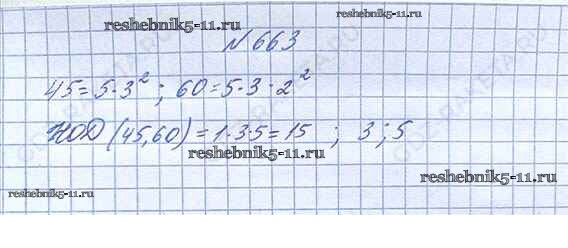 reshebnik5-11.ru
№ 663
45 = 5·3²; 60 = 5·3·2²
НОД (45,60) = 1·3·5 = 15 ; 3; 5
reshebnik5-11.ru
reshebnik5-11.ru
reshebnik5-11.ru